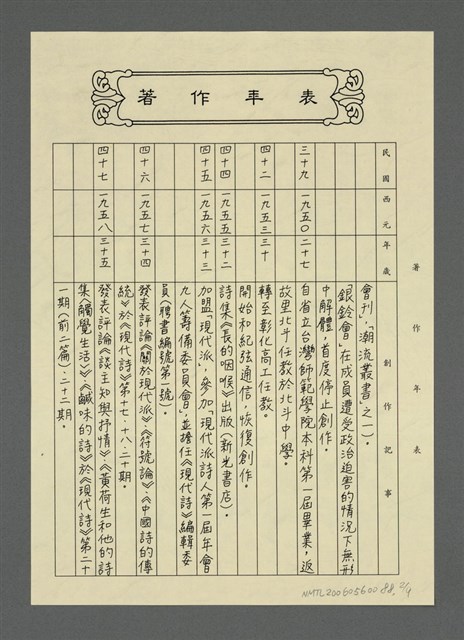 著作年表
著作年表
民國
西元
年歲
著作創作記事
會刊「潮流叢書之一」。
「銀鈴會」在成員遭受政治迫害的情況下無形
中解體，首度停止創作。
三十九 一九五〇 二十七 自省立台灣師範學院本科第一屆畢業，返
故里北斗任教於北斗中學。
四十二 一九五三 三十 轉至彰化高工任教。
開始和紀弦通信，恢復創作。
四十四 一九五五 三十二 詩集《長的咽喉》出版（新光書店）。
四十五 一九五六 三十三 加盟「現代派」，參加「現代派詩人第一屆年會
九人籌備委員會」，並擔任《現代詩》編輯委
員（聘書編號第一號）。
四十六 一九五七 三十四 發表評論《關於現代派》、《符號論》、《中國詩的傳
統》於《現代詩》第十七、十八、二十期。
四十七 一九五八 三十五 發表評論《談主知與抒情》、《黃荷生和他的詩
集《觸覺生活》》、《鹹味的詩》於《現代詩》第二十
一期（前二篇）、二十二期。
NMTL20060560088. 2/9